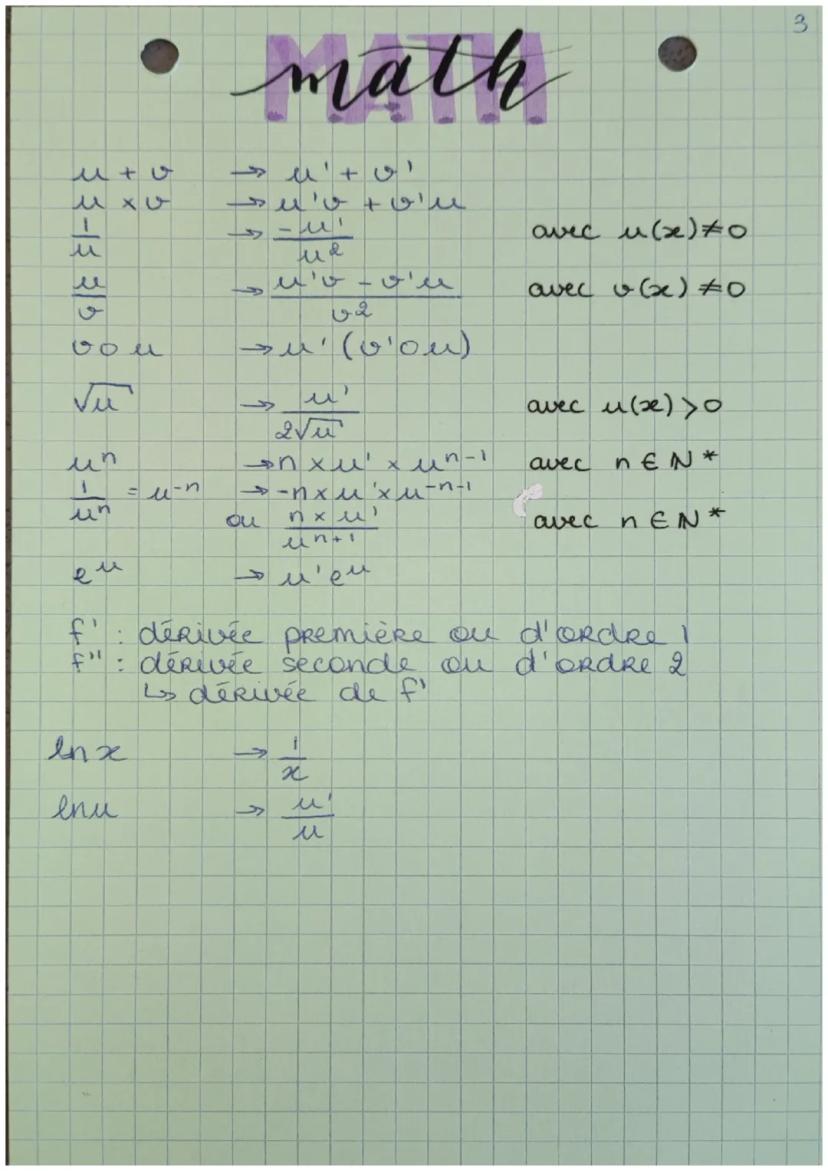 3
MATH
math
u + v → u' + v'
u × v → u'v + v'u
1/u → -u'/u² avec u(x) ≠ 0
u/v → (u'v - v'u)/v² avec v(x) ≠ 0
v o u → u' (v' o u)
√u → u'/(2√u) avec u(x) > 0
uⁿ → n × u' × uⁿ⁻¹ avec n ∈ ℕ*
1/uⁿ = u⁻ⁿ → -n × u' × u⁻ⁿ⁻¹
ou (n × u')/uⁿ⁺¹ avec n ∈ ℕ*
eᵘ → u'eᵘ
f' : dérivée première ou d'ordre 1
f'' : dérivée seconde ou d'ordre 2
↳ dérivée de f'
ln x → 1/x
ln u → u'/u